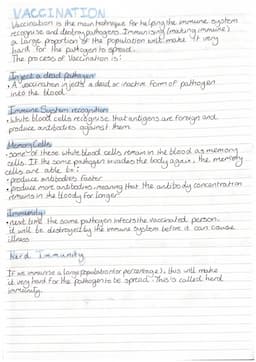 VACCINATION
Vaccination is the main technique for helping the immune system
recognise and destroy pathogens. Immunising (making immune)
a large proportion of the population will make it very
hard for the pathogen to spread.
The process of Vaccination is:
Inject a dead pathogen
• A vaccination injects a dead or inactive form of pathogen
into the blood.
Immune System recognition
• White blood cells recognise that antigens are foreign and
produce antibodies against them
Memory Cells
• some of these white blood cells remain in the blood as memory
cells. If the same pathogen invades the body again, the memory
cells are able to:
• produce antibodies faster
• produce more antibodies, meaning that the antibody concentration
remains in the blood for longer.
Immunity
• next time the same pathogen infects the vaccinated person,
it will be destroyed by the immune system before it can cause
illness
Herd Immunity
If we immunise a large population (or percentage), this will make
it very hard for the pathogen to be spread. This is called herd
immunity.